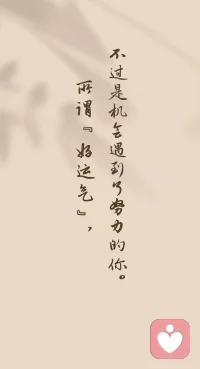 所谓『好运气』，
不过是机会遇到了努力的你。